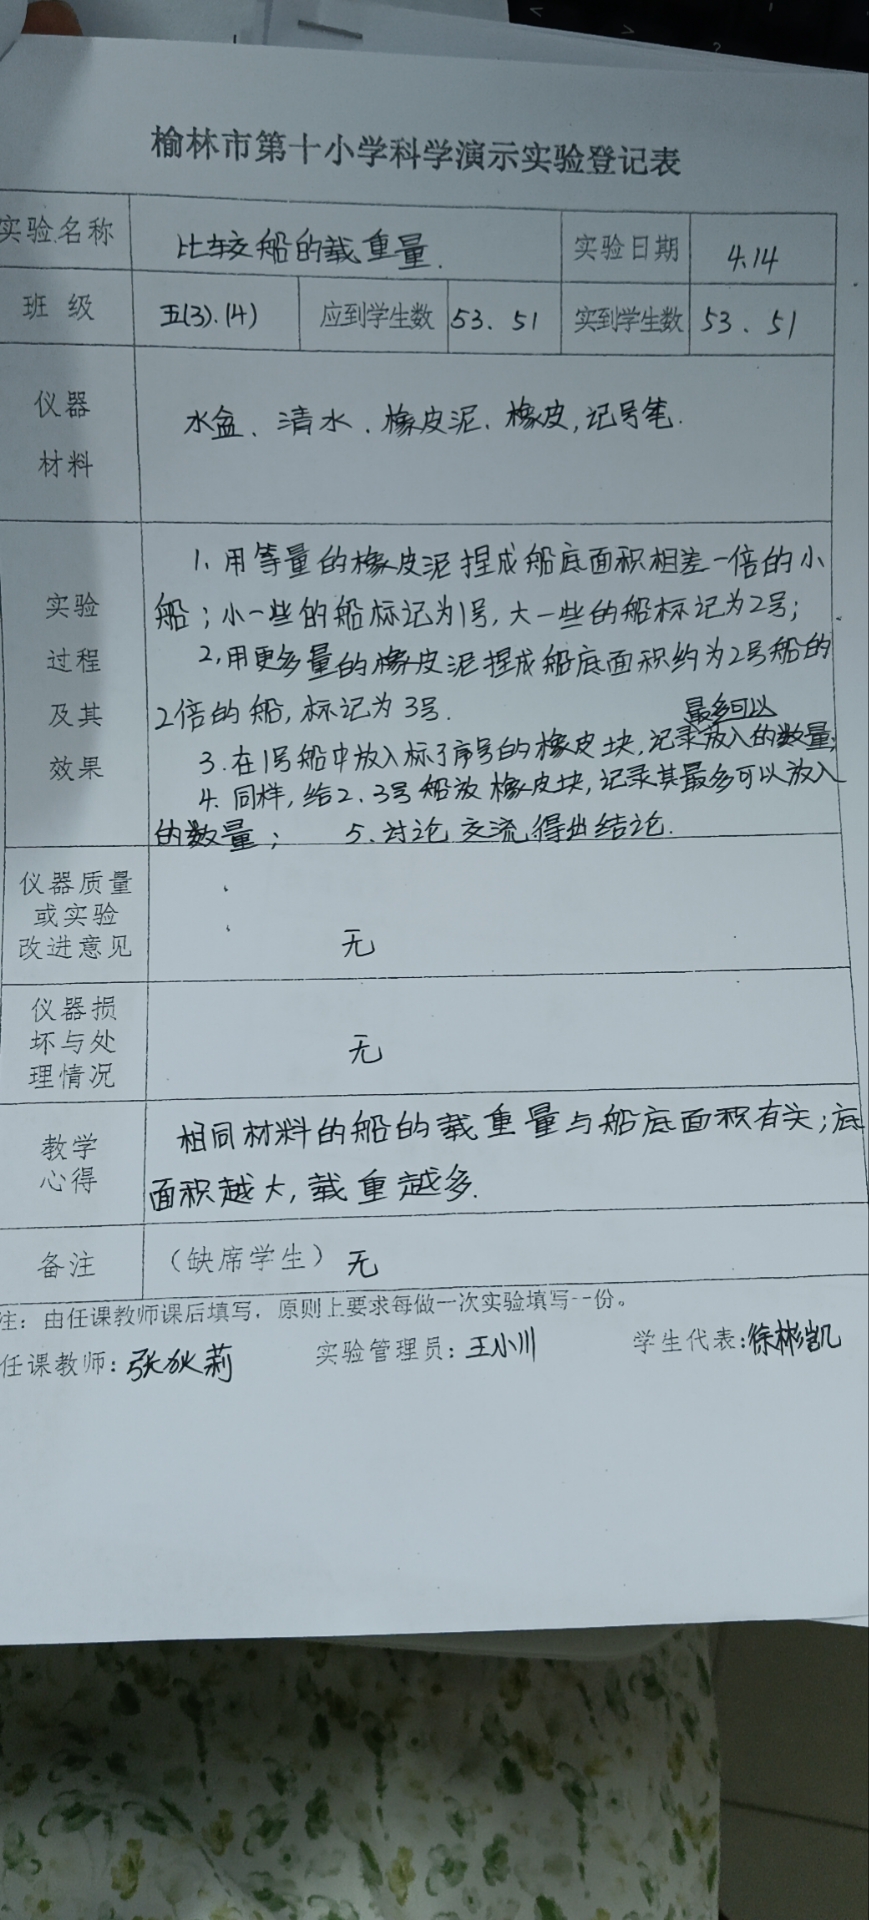 榆林市第十小学科学演示实验登记表
实验名称 比较船的载重量. 实验日期 4.14
班 级 五(3).(4) 应到学生数 53.51 实到学生数 53.51
仪器
材料
水盆、清水、橡皮泥、橡皮,记号笔.
实验
过程
及其
效果
1、用等量的橡皮泥捏成船底面积相差一倍的小
船;小一些的船标记为1号,大一些的船标记为2号;
2,用更多量的橡皮泥捏成船底面积约为2号船的
2倍的船,标记为3号.
最多可以
3.在1号船中放入标了序号的橡皮块,记录放入的数量;
4.同样,给2、3号船放橡皮块,记录其最多可以放入
的数量; 5.讨论交流得出结论.
仪器质量
或实验
改进意见
无
仪器损
坏与处
理情况
无
教学
心得
相同材料的船的载重量与船底面积有关;底
面积越大,载重越多.
备注 (缺席学生) 无
注:由任课教师课后填写,原则上要求每做一次实验填写一份。
任课教师: 张 莉 实验管理员: 王小川 学生代表:徐彬凯